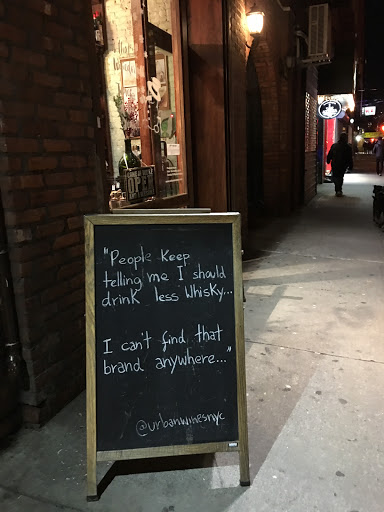 "People keep
telling me I should
drink less Whisky...
I can't find that
brand anywhere..."
@urbanwinesnyc
OPEN